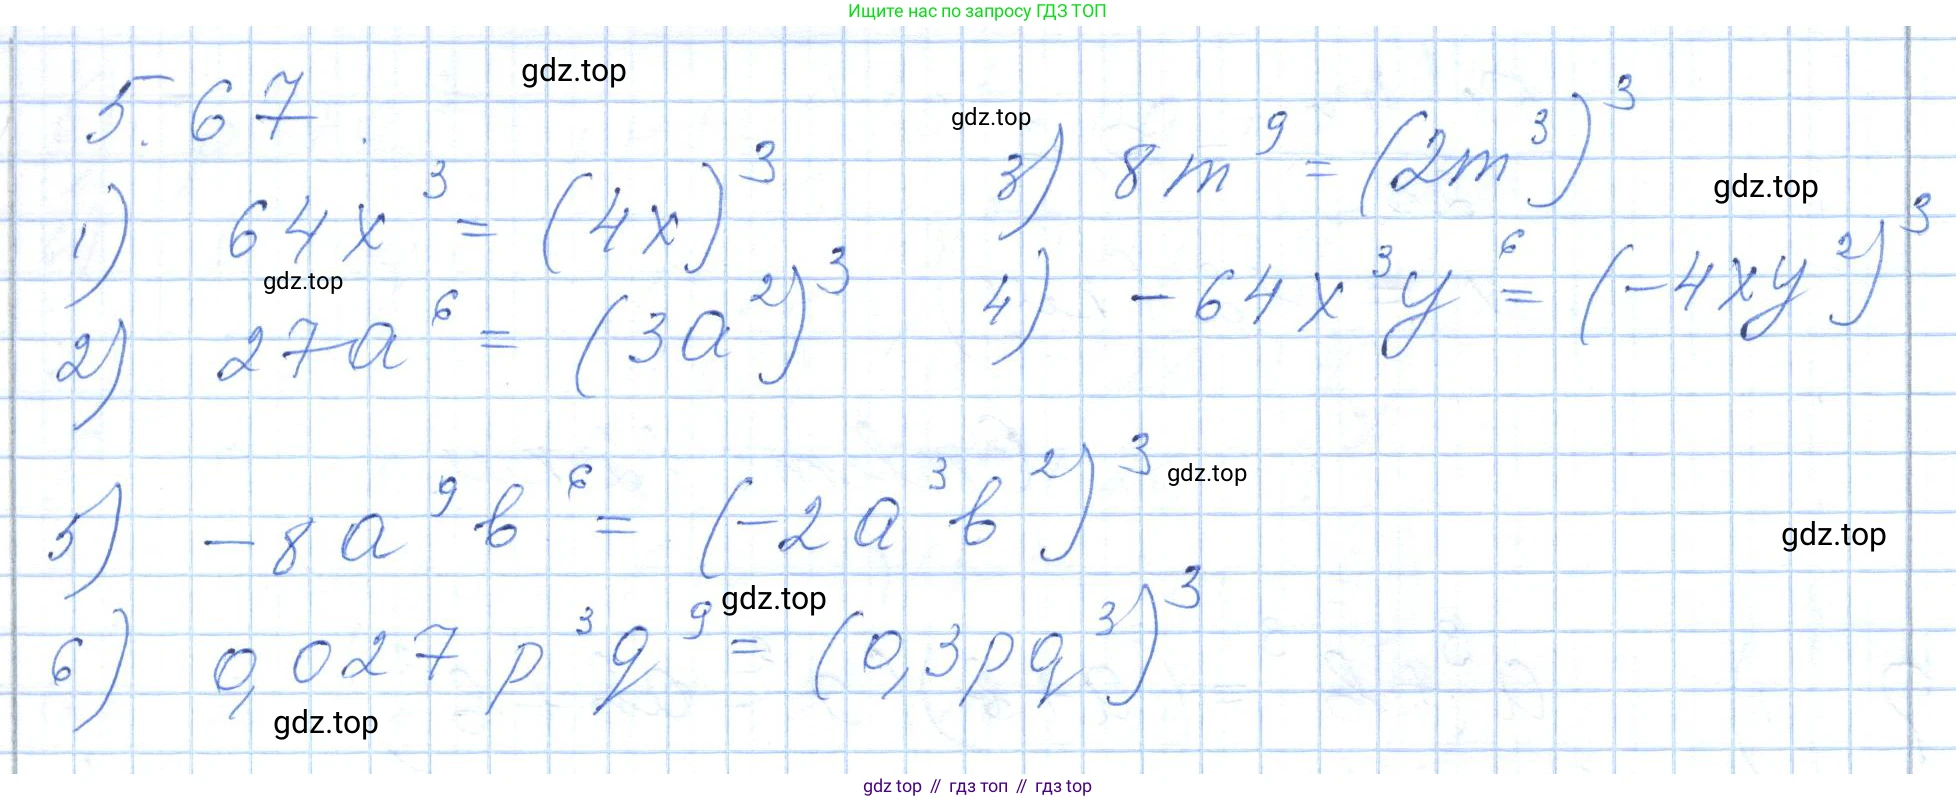 Ищите нас по запросу ГДЗ ТОП
5.67.
gdz.top
gdz.top
1) 64x³ = (4x)³
3) 8m⁹ = (2m³)³
gdz.top
gdz.top
2) 27a⁶ = (3a²)³
4) -64x³y⁶ = (-4xy²)³
5) -8a⁹b⁶ = (-2a³b²)³
gdz.top
gdz.top
gdz.top
6) 0,027p³q⁹ = (0,3pq³)³
gdz.top
gdz top // гдз топ // гдз top